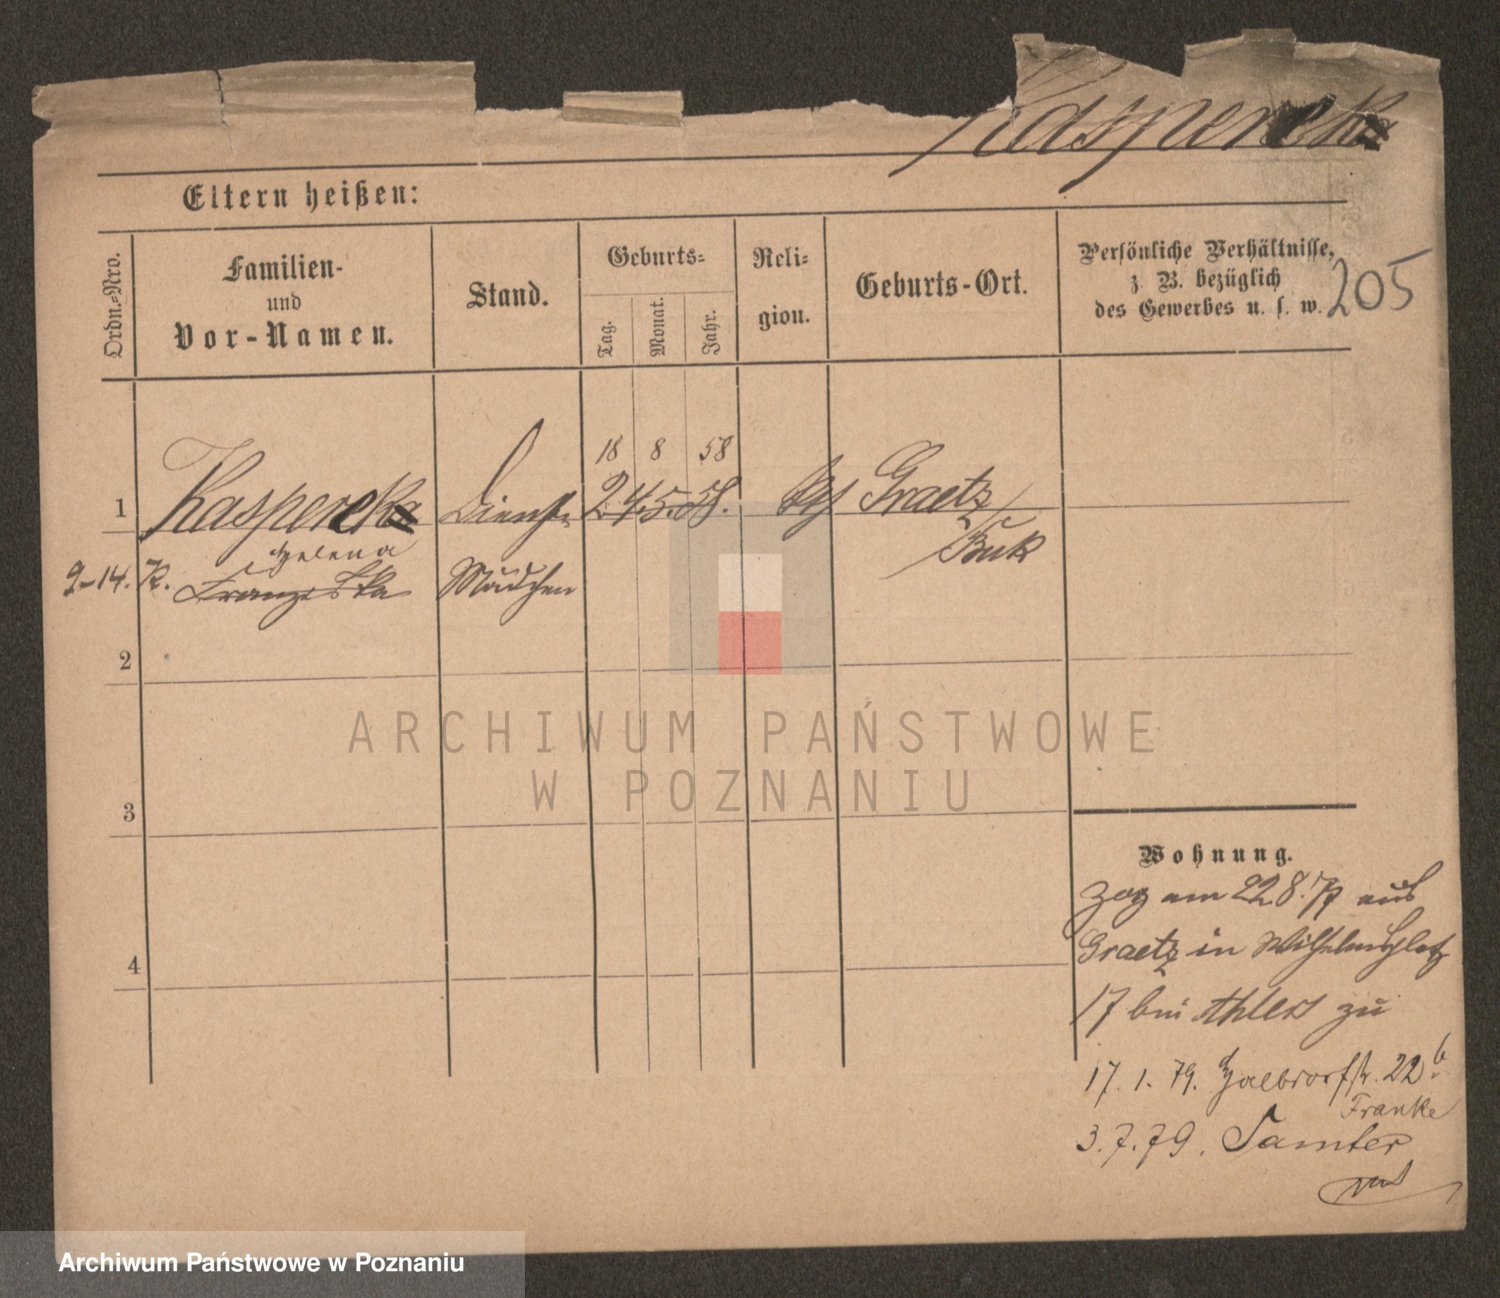 Kaspereck
Eltern heißen:
Ordn.-Nro.
Familien-
und
Vor-Namen.
Stand.
Geburts-
Tag.
Monat.
Jahr.
Reli-
gion.
Geburts-Ort.
Persönliche Verhältnisse,
z. B. bezüglich
des Gewerbes u. s. w.
205
18 8 58
1 Kaspereck Dienst- 24.5.58. Graetz
Buk
Helena
9-14. K. Franziska Mädchen
2
3
4
Wohnung.
zog am 22.8.77 aus
Graetz in Wilhelmsplatz
17 bei Ahlers zu
17. 1. 79. Halbdorfstr. 22b.
Franke
3.7.79. Samter
ARCHIWUM PAŃSTWOWE
W POZNANIU
Archiwum Państwowe w Poznaniu